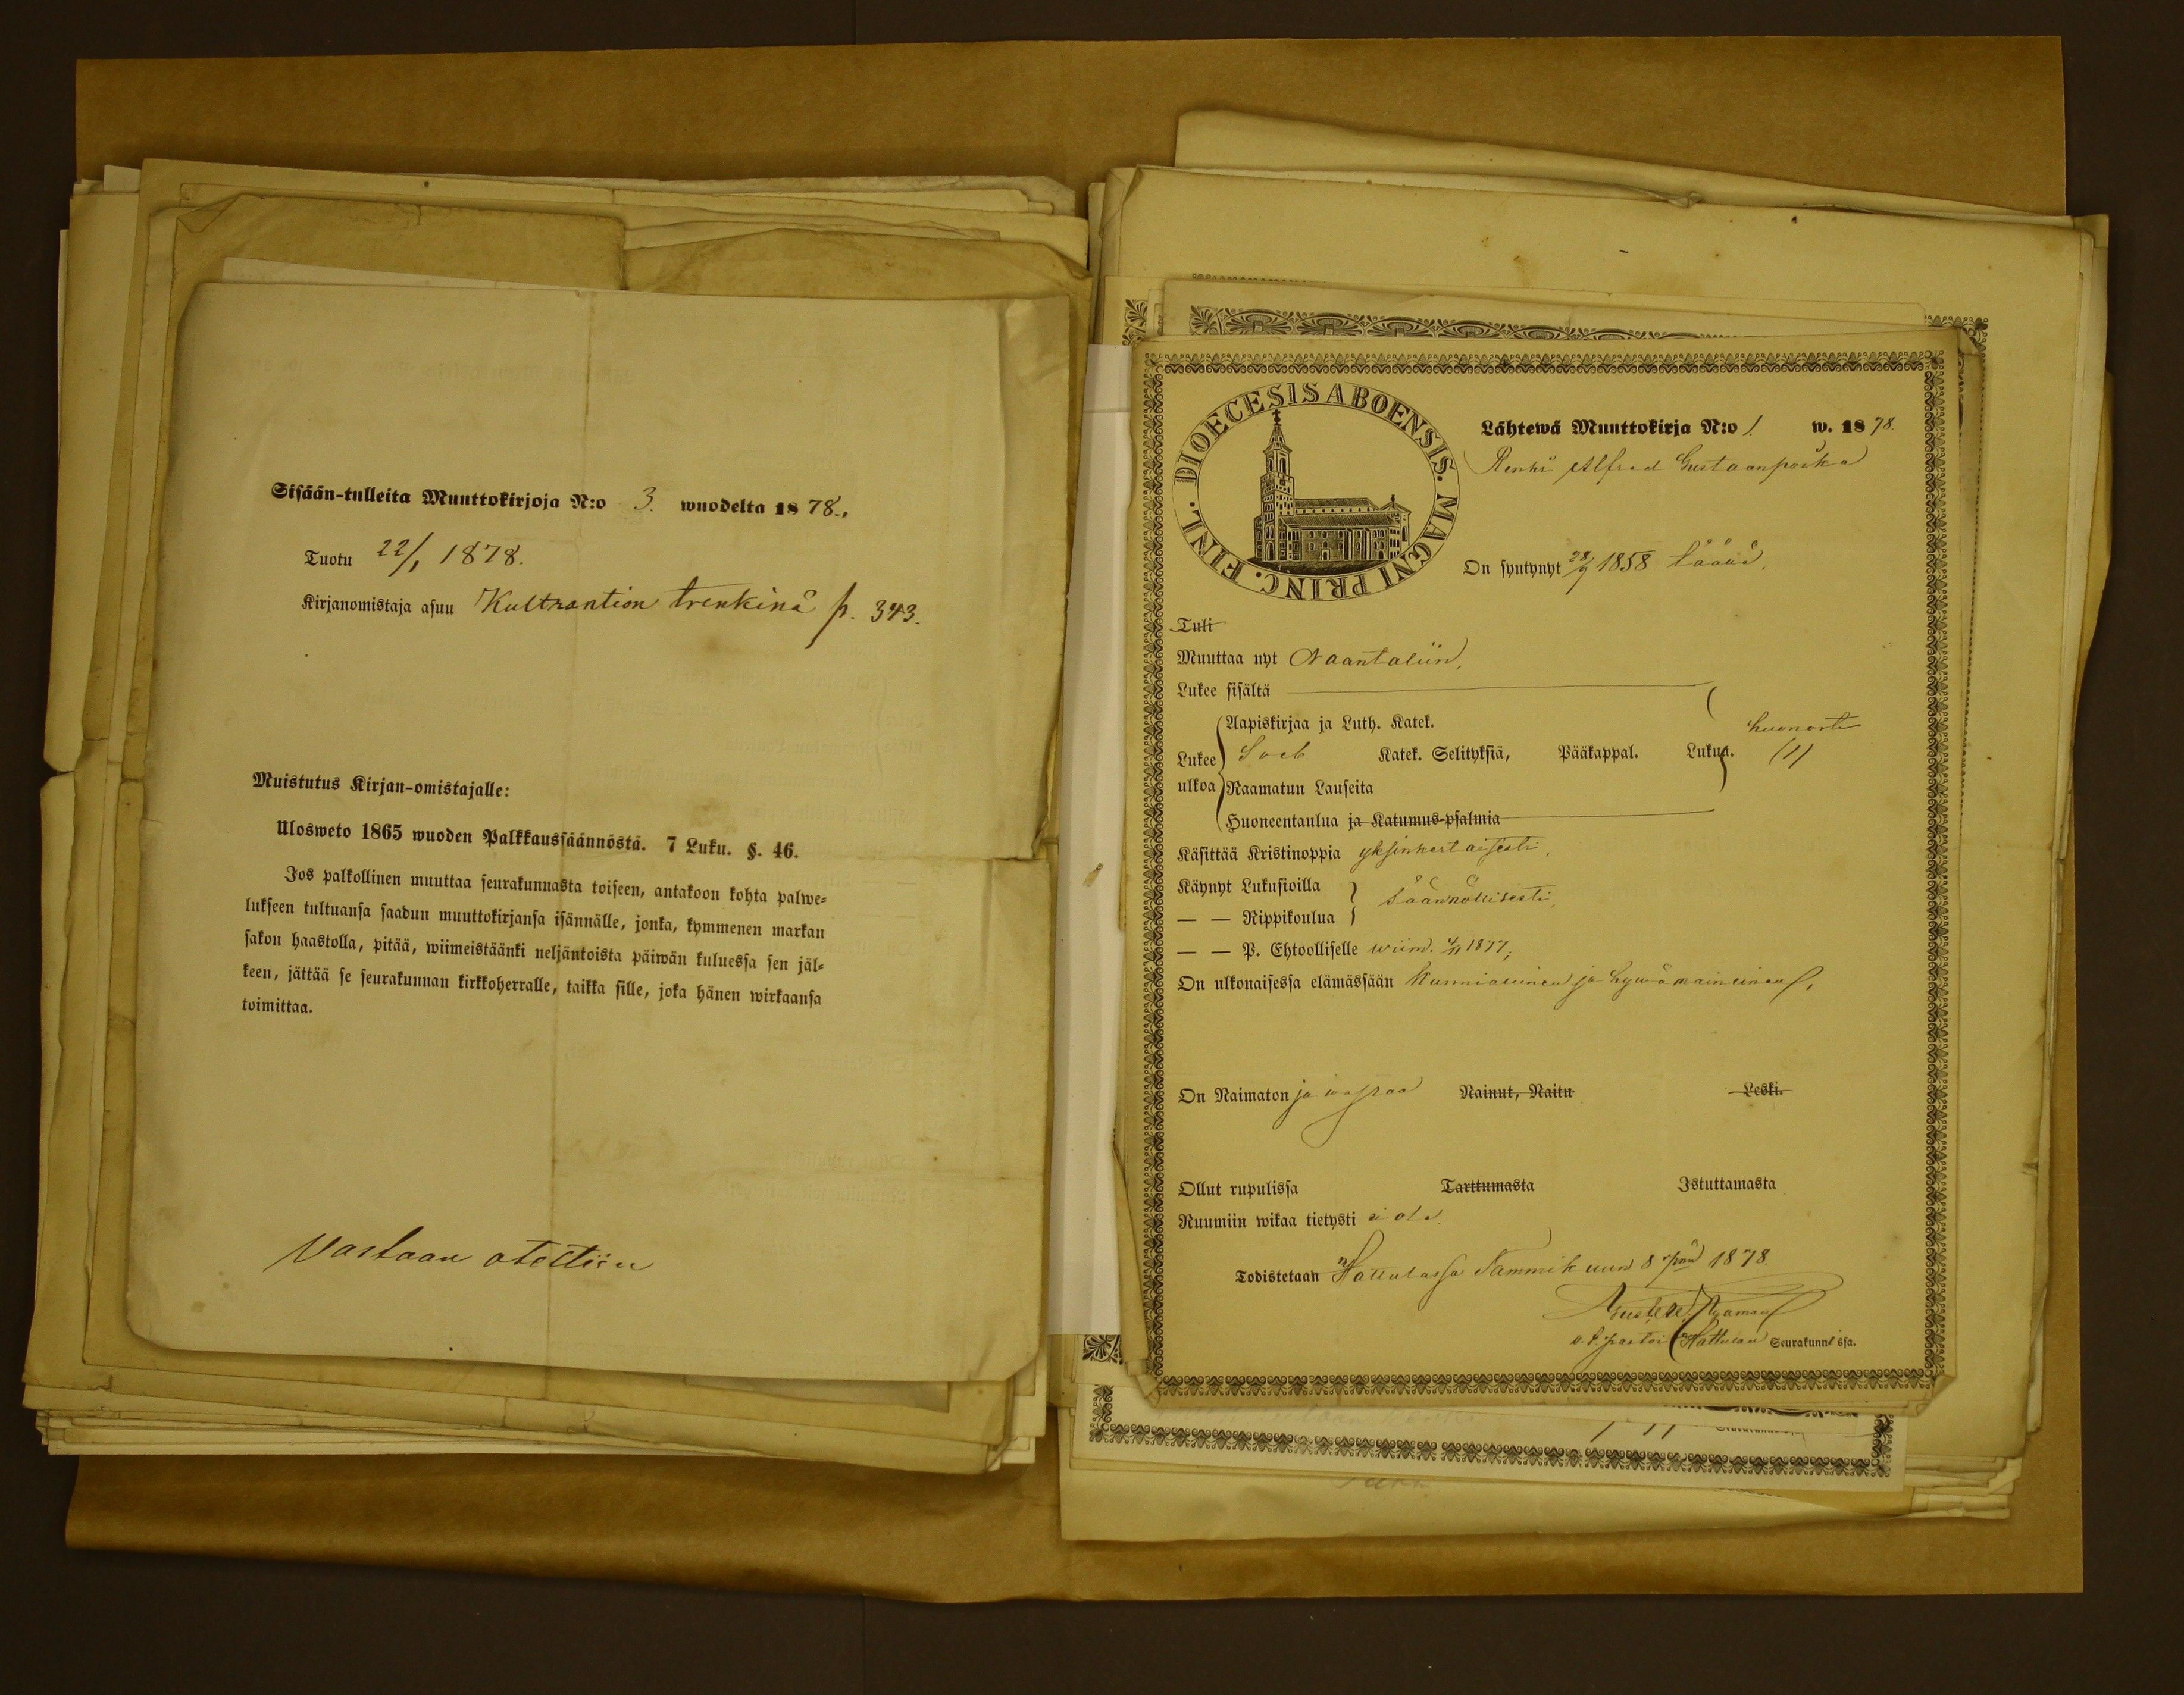 Sisään-tulleita Muuttokirjoja N:o 3. wuodelta 1878.
Tuotu 22/1 1878.
Kirjanomistaja asuu Kultrantion trenkinä p. 343.
Muistutus Kirjan-omistajalle:
Ulosweto 1865 wuoden Palkkaussäännöstä. 7 Luku. §. 46.
Jos palkollinen muuttaa seurakunnasta toiseen, antakoon kohta palwe=
lukseen tultuansa saadun muuttokirjansa isännälle, jonka, kymmenen markan
sakon haastolla, pitää, wiimeistäänki neljäntoista päiwän kuluessa sen jäl=
keen, jättää se seurakunnan kirkkoherralle, taikka sille, joka hänen wirkaansa
toimittaa.
Vastaan otettiin
DIOECESIS ABOENSIS. MAGNI PRINC. FINL.
Lähtewä Muuttokirja N:o 1. w. 1878.
Renki Alfred Gustaanpoika
On syntynyt 28/9 1858 täällä.
Tuli
Muuttaa nyt Naantaliin,
Lukee sisältä
Aapiskirjaa ja Luth. Katek.
huonosti
Lukee Katek. Selityksiä, Pääkappal. Lukua. (1)
ulkoa Raamatun Lauseita
Huoneentaulua ja Katumus-psalmia
Käsittää Kristinoppia yksinkertaisesti.
Käynyt Lukusioilla
säännöllisesti,
— — Rippikoulua
— — P. Ehtoolliselle wiim. 4/11 1877;
On ulkonaisessa elämässään kunniallinen ja hywämaineinen,
On Naimaton ja wapaa Nainut, Naitu Leski.
Ollut rupulissa Tarttumasta Istuttamasta
Ruumiin wikaa tietysti ei ole.
Todistetaan Hattulassa Tammikuun 8 p:nä 1878.
Nyman
v. t. pastori Hattulan Seurakunnissa.